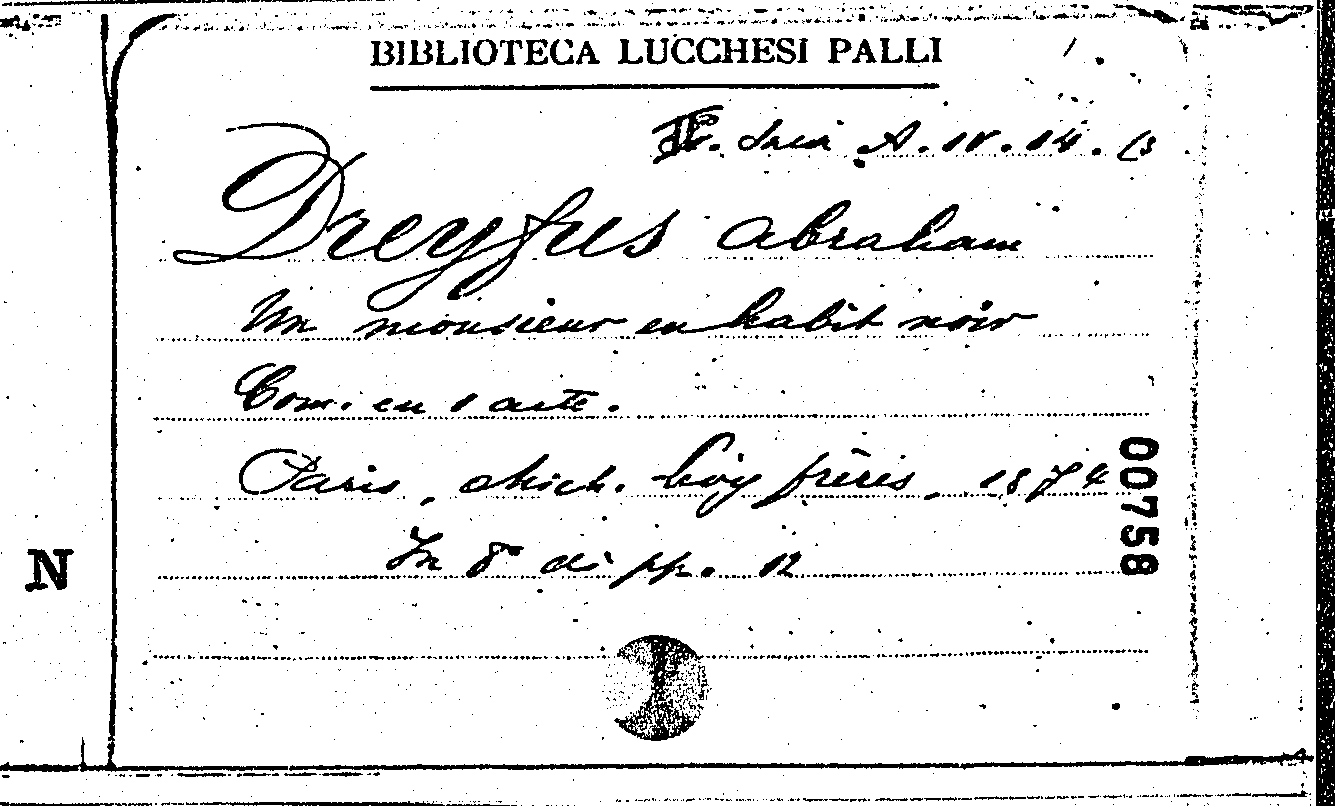 BIBLIOTECA LUCCHESI PALLI
A. IV. 14.
Dreyfus Abraham
Un monsieur en habit noir
Com. en 1 acte.
Paris, Mich. Lévy frères, 1874
In 8° di pp. 12
00758
N